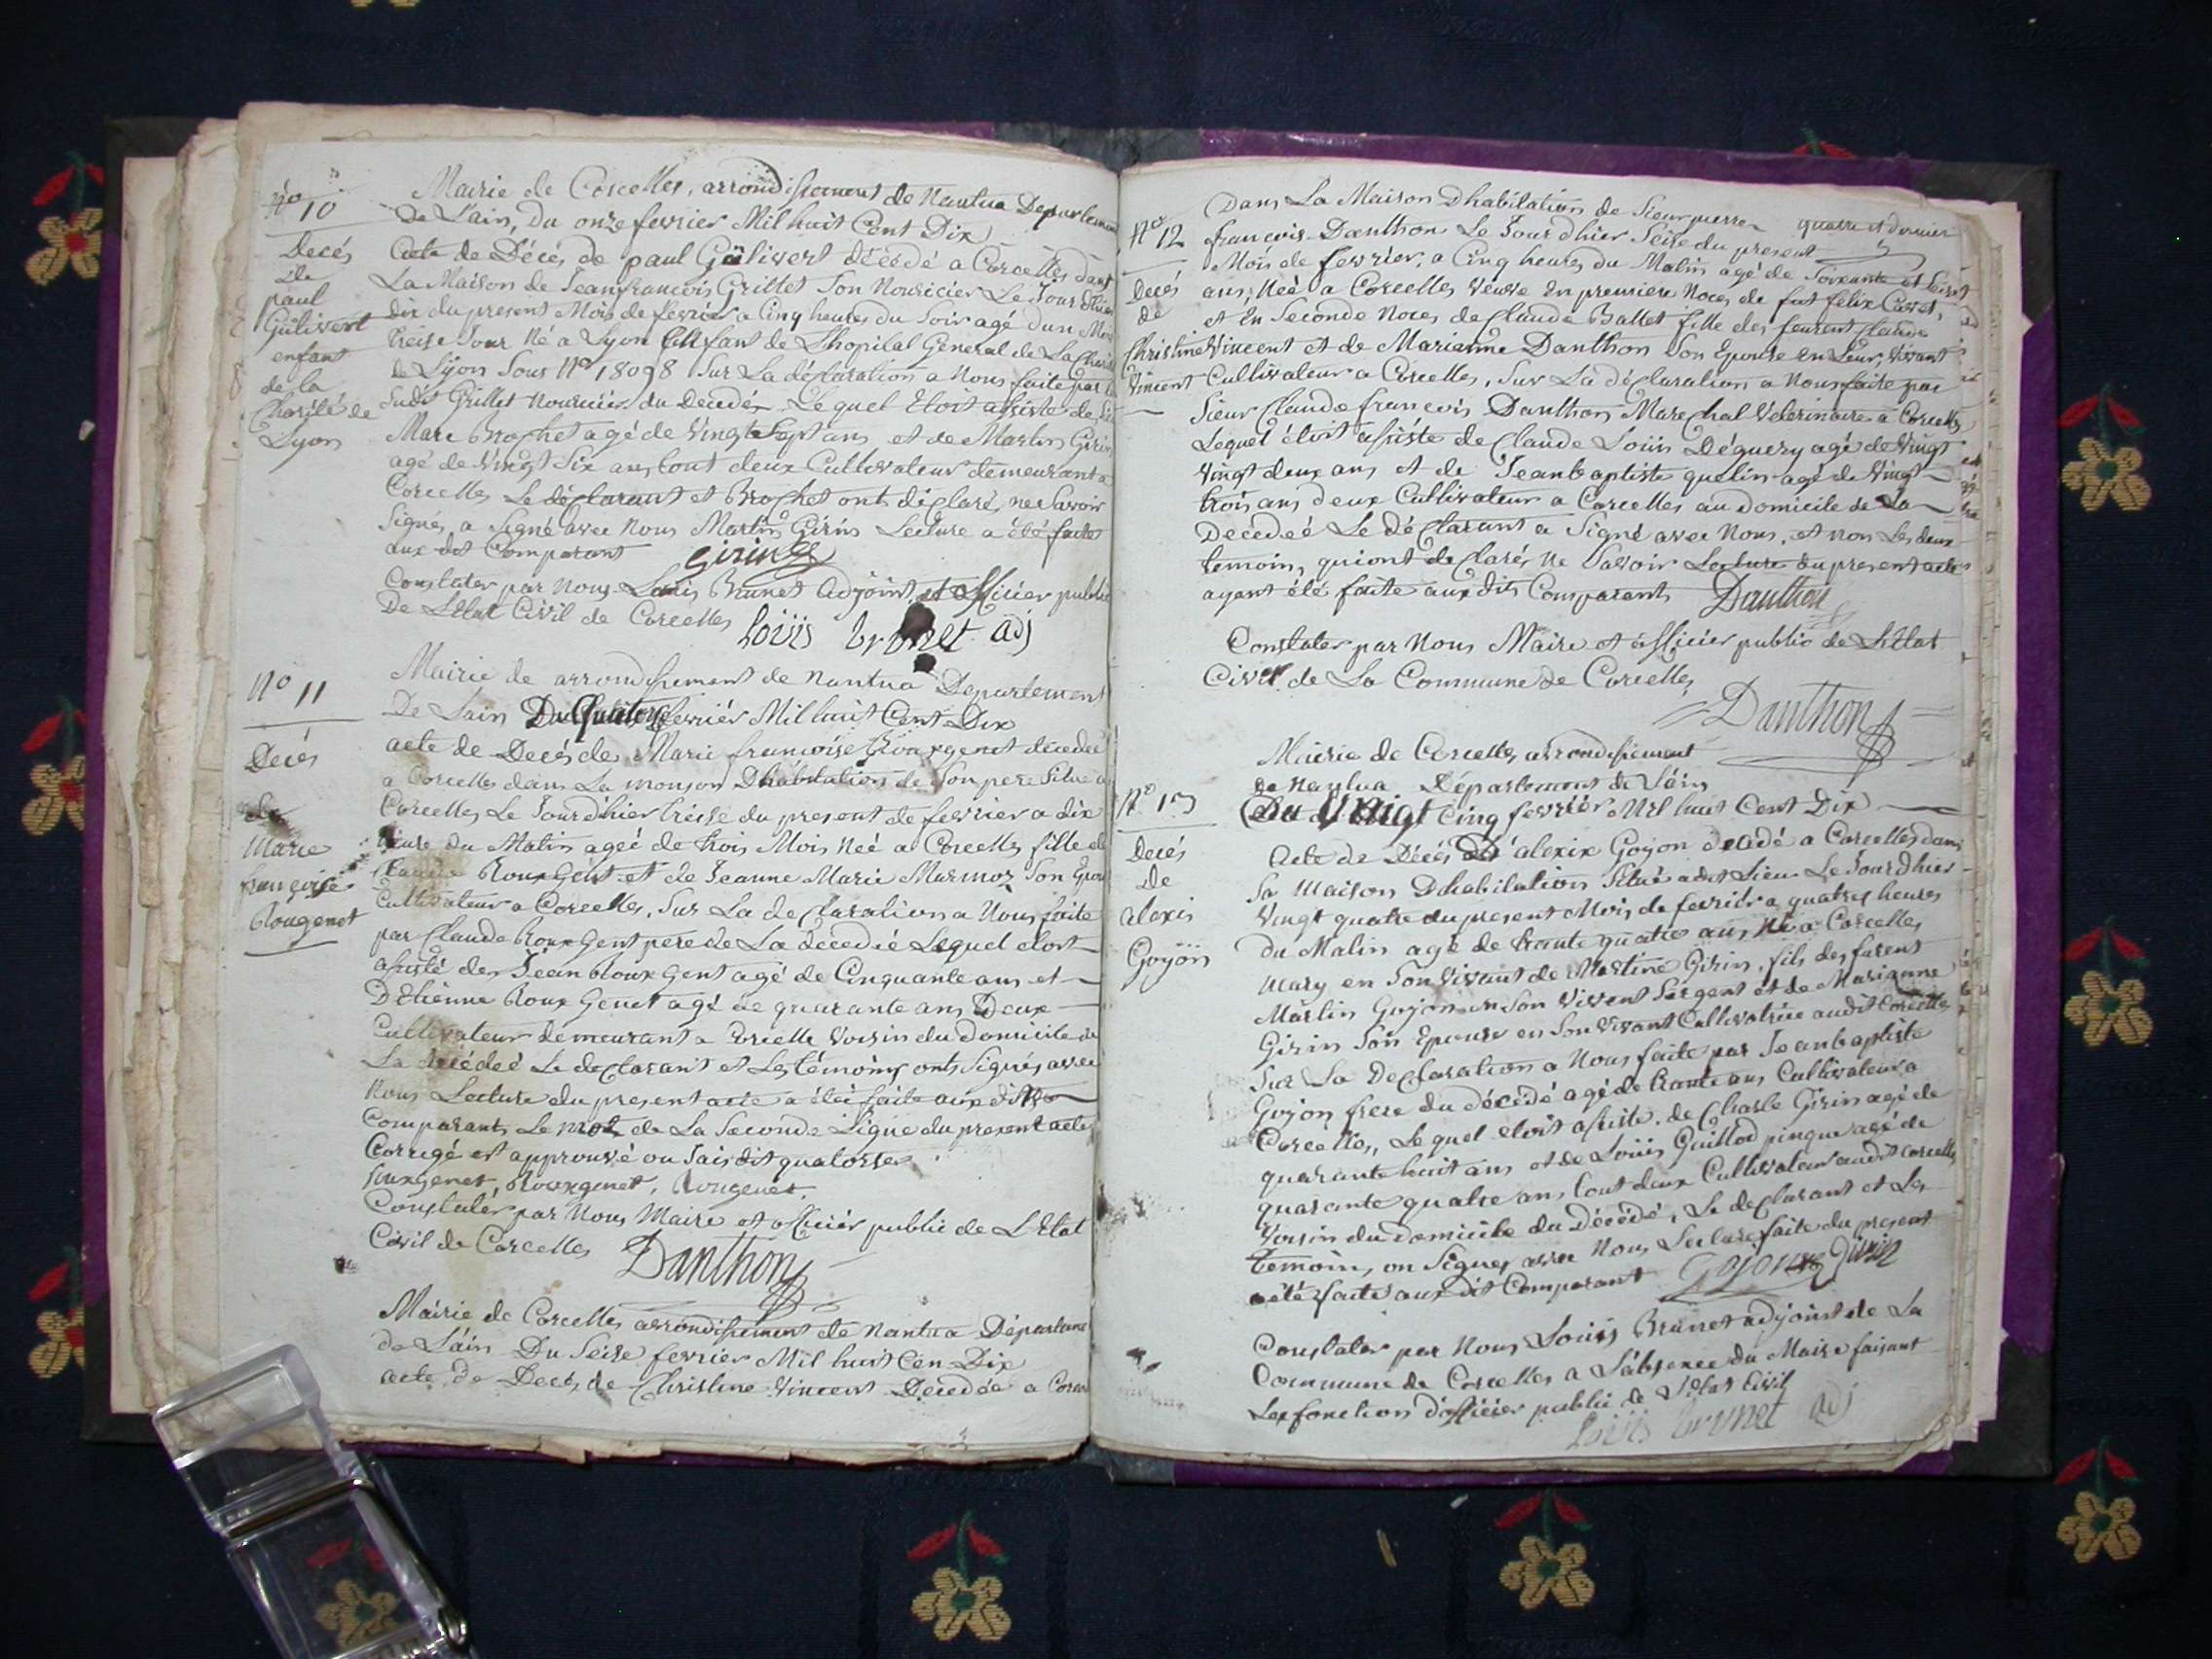 No 10
Decés
de
paul
Gülivert
enfant
de la
Charité de
Lyon
Mairie de Corcelles, arrondissement de Nantua Departement
De Lain, Du onze fevrier Mil huit Cent Dix
Acte de Décés de paul Gülivert décédé a Corcelles dans
La Maison de Jeanfrancois Grillet Son Nouricier Le Jour Dhier
dix du present Mois de fevrier a Cinq heures du Soir agé dun Mois
treise Jour Né a Lyon Enfant de Lhopital General de La Charité
de Lyon Sous No 18098 Sur La déclaration a Nous faite par Le
Sudit Grillet Nouricier du Decedés Lequel Etoit assiste de
Marc Brochet agé de Vingt Sept ans et de Martin Girin
agé de Vingt Six ans tout deux Cultivateur demeurant a
Corcelles Le déclarant et Brochet ont déclaré ne Savoir
Signés, a Signé avec Nous Martin Girin Lecture a été faite
aux dit Comparant Girin
Constater par Nous Louis Brunet Adjoint et officier public
De LEtat Civil de Corcelles Loüis brunet adj
No 11
Decés
de
Marie
françoise
Rougenet
Mairie de arrondissement de Nantua Departement
De Lain Du Quatorze fevriér Mil huit Cent Dix
acte de Decés de Marie francoise Rouxgenet décedeé
a Corcelles dans La monson Dhabitation de Son pere Situé a
Corcelles Le Jour dhier treise du present de fevrier a dix
heure du Matin ageé de trois Mois Neé a Corcelles fille de
Claude Roux Gent et de Jeanne Marie Marmoz Son Epouse
Cultivateur a Corcelles, Sur La declaration a Nous faite
par Claude Roux Gent pere de La decedeé Lequel etoit
assisté de Jean Roux Gent agé de Cinquante ans et
DEtiénne Roux Genet agé de quarante ans Deux
Cultivateur demeurant a Corcelle Voisin du Domicile de
La decédeé Le declarant et Les témoins onts Signés avec
Nous Lecture du present acte a été faite aux dit
Comparant, Le mot de La Seconde Ligne du present acte
Corrigé et approuvé ou Jais dit quatorse
rouxgenet, Rouxgenet, Rougenet.
Constatér par Nous Maire et officiér public de LEtat
Civil de Corcelles Danthon
Mairie de Corcelles arrondissement de Nantua Département
de Láin Du Seise fevrier Mil huit Cen Dix
acte de Decés de Christine Vincent Decedée a
No 12
Decés
de
Christine
Vincent
Dans La Maison Dhabitation de Sieur pierre
francois Danthon Le Jour dhier Seise du present
Mois de fevrier, a Cinq heures du Matin agé de Soixante et
quatre et dernier
ans, Neé a Corcelles Veuve En premiere Noces de fut félix Cavet,
et En Seconde Noces de Claude Ballet fille des feurent Claude
Vincent et de Marianne Danthon Son Epouse en Leur Vivant
Cultivateur a Corcelles, Sur La déclaration a Nous faite par
Sieur Claude francois Danthon Marechal Veterinaire a Corcelles
Lequel étoit assiste de Claude Loüis Déguery agé de Vingt
Vingt deux ans et de Jeanbaptiste quelin agé de Vingt
trois ans deux Cultivateur a Corcelles au domicile de La
Decedeé Le déclarant a Signé avec Nous, et non Les deux
temoin, quiont declarés ne Savoir Lecture du present acte
ayant été faite aux dits Comparent Danthon
Constater par Nous Maire et officiér public de LEtat
Civil de La Commune de Corcelles
Danthon
No 13
Decés
De
alexis
Goyon
Mairie de Corcelles arrondissement
de Nantua Département de Láin
Du Vingt Cinq fevriér Mil huit Cent Dix
Acte de Décés de alexix Goyon decédé a Corcelles dans
Sa Maison Dhabitation Situé adit Lieu Le Jour Dhier
Vingt quatre du present Mois de fevriér a quatre heures
du Matin agé de trante quatre ans Né a Corcelles
Mary en Son Vivant de Martine Girin, fils des furent
Martin Goyon en Son Vivent Sergent et de Marianne
Girin Son Epouse en Son Vivant Cultivatrice audit Corcelles
Sur La Declaration a Nous faite par Jeanbaptiste
Goyon frere du décédé agé de trante ans Cultivateur a
Corcelles, Lequel etoit assiste de Charle Girin agé de
quarante huit ans et de Loüis Guillod pingue agé de
quarante quatre ans tout deux Cultivateur audit Corcelles
Voisin du Domicile du Décédé, Le declarant et Les
temoins, on Signes avec Nous Lecture faite du present
a été faite aux dit Comparant Goyon Girin
Constater par Nous Loüis Brunet adjoint de La
Commune de Corcelles a Labsence du Maire faisant
Les fonction dofficiér public de LEtat Civil
Loüis brunet adj